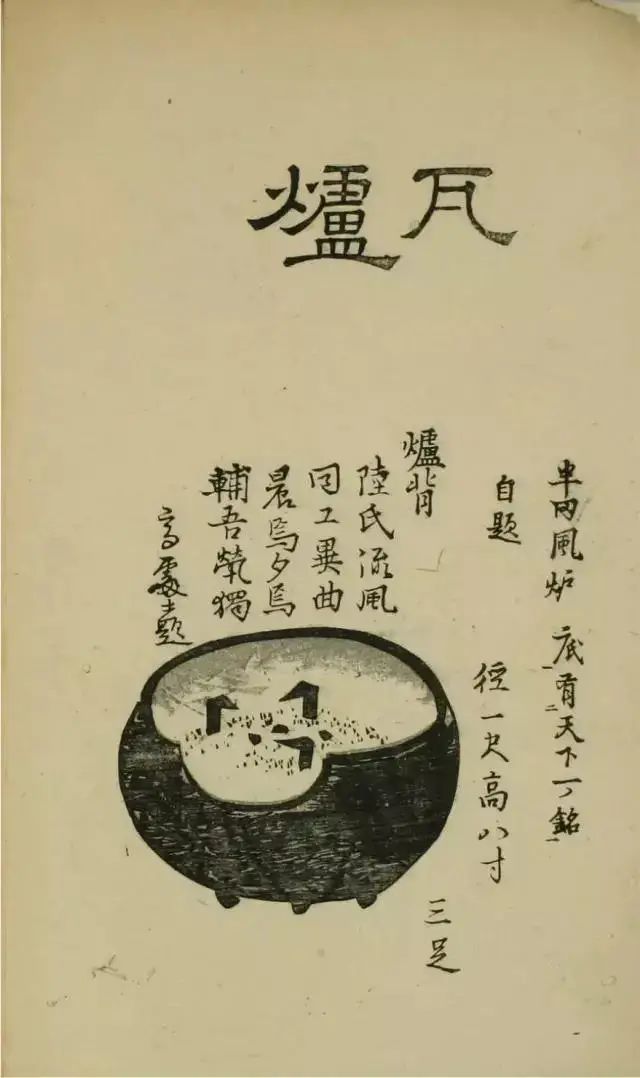 瓦爐
半田風炉 底有天下一ノ銘
自題
徑一尺高八寸
三足
爐背
陸氏流風
同工異曲
晨焉夕焉
輔吾煢獨
高處士題